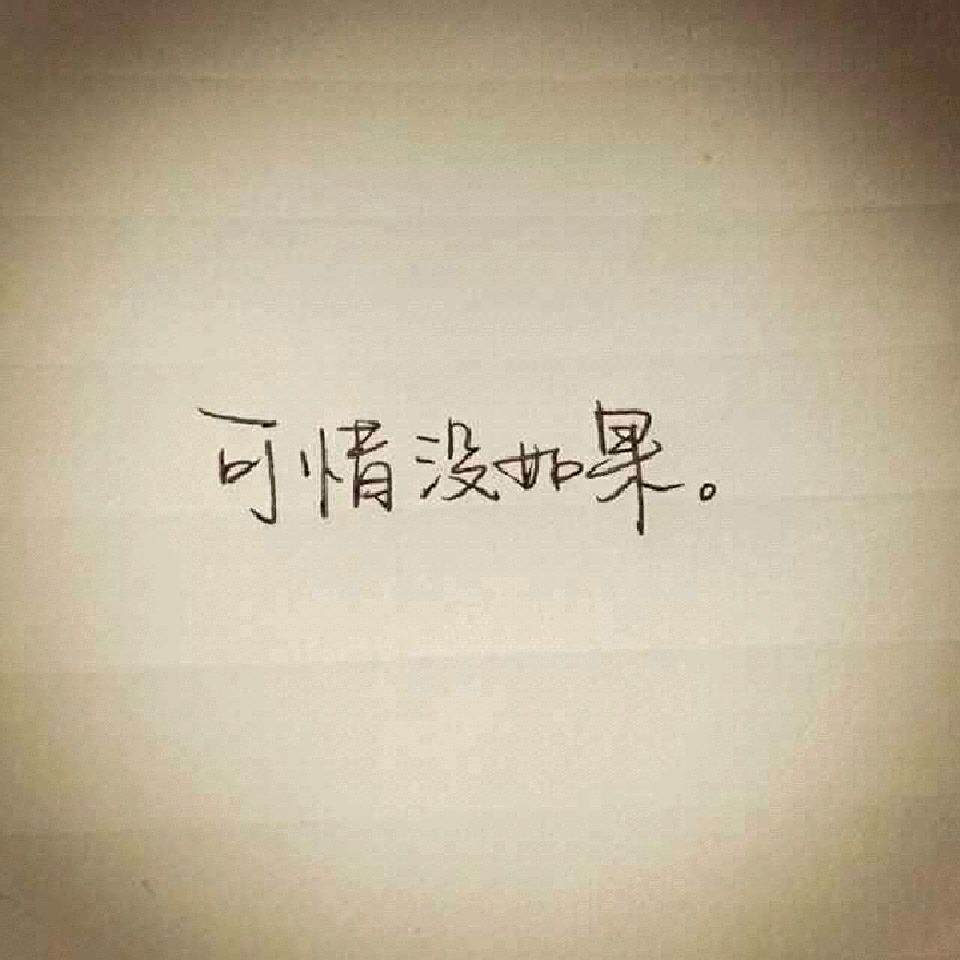 可惜没如果。